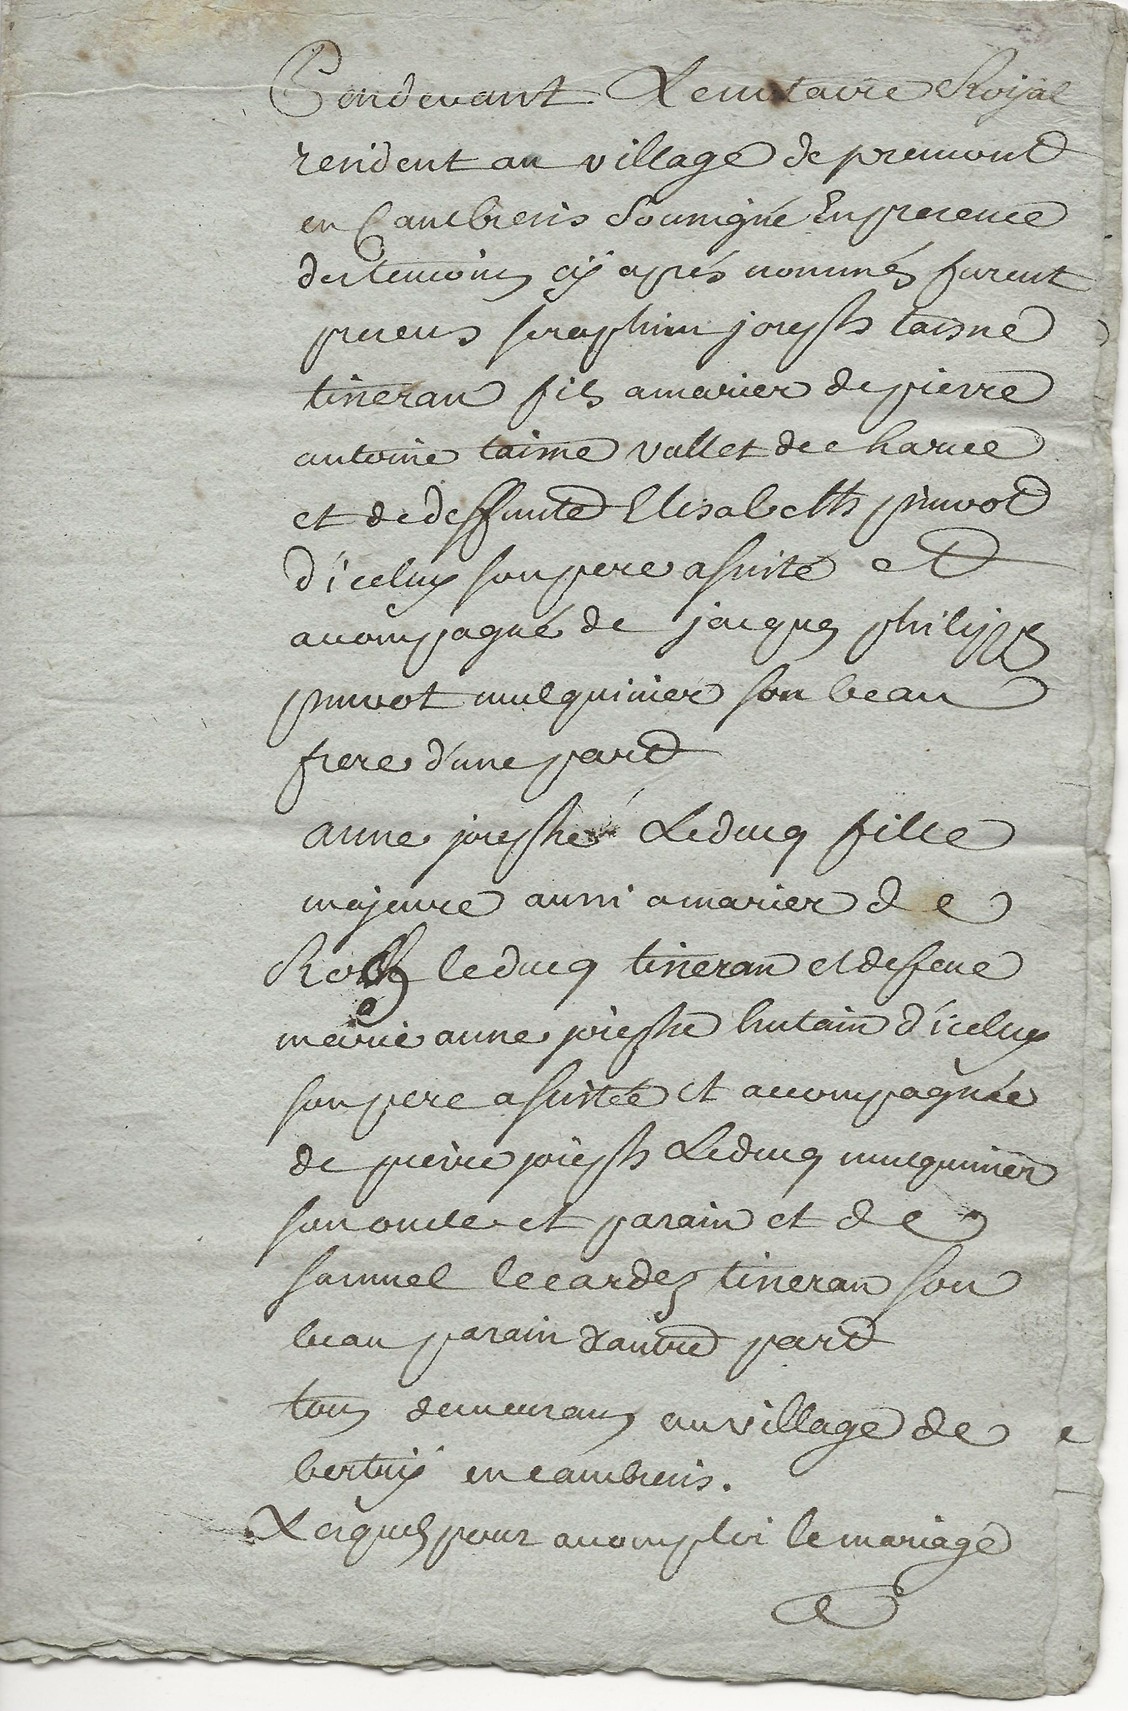 Pardevant Le notaire Royal
resident au village de premont
en Cambresis Sousigné En presence
des temoins cy après nommés furent
presens seraphin joseph taisne
tisseran fils a marier de pierre
antoine taisne vallet de charue
et de deffunte Elisabeth pruvot
d'iceluy son pere assisté et
acompagné de jacques philippe
pruvot mulquinier son beau
frere d'une part
anne josephe Leducq fille
majeure aussi a marier de
Roch leducq tisseran et de feue
marie anne josephe hutain d'iceluy
son pere assistée et accompagnée
de pierre joseph Leducq mulquinier
son oncle et parain et de
samuel lecardez tisseran son
beau parain d'autre part
tous demeurans au village de
bertry en cambresis.
Lesquels pour acomplir le mariage